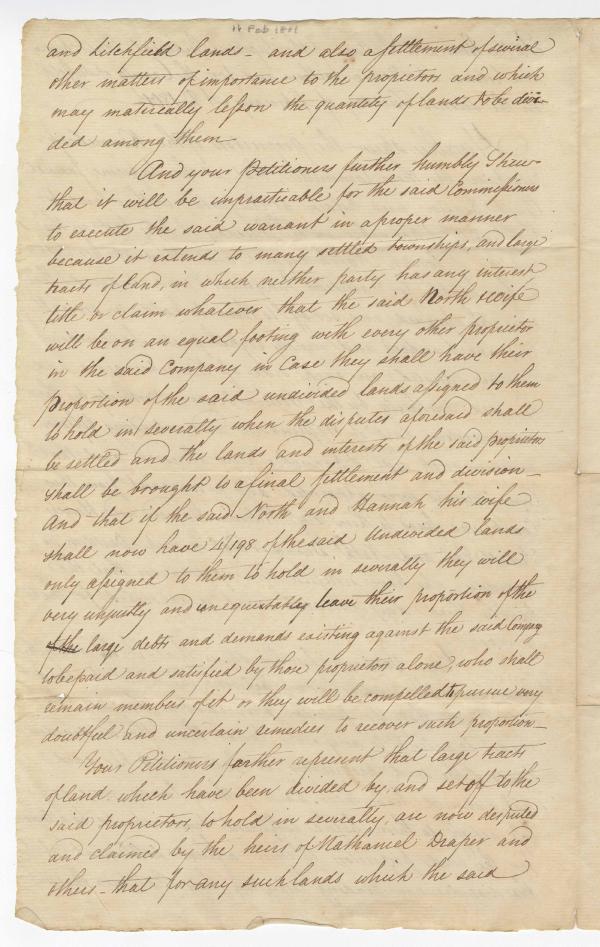 14 Feb 1801
and Litchfield lands - and also a settlement of several
other matters of importance to the propietors and which
may materially lesson the quantity of lands to be divi-
ded among them
And your Petitioners further humbly Shew
that it will be unpractisable for the said Commissioners
to execute the said warrant in a proper manner
because it extends to many settled townships, and large
tracts of land, in which neither party has any interest
title or claim whatever that the said North & wife
will be on an equal footing with every other proprietor
in the said Company in Case they shall have their
proportion of the said undivided lands assigned to them
to hold in severalty when the disputes aforesaid shall
be settled and the lands and interests of the said proprietors
shall be brought to a final settlement and division -
And that if the said North and Hannah his wife
shall now have 4/198 of the said Undivided lands
only assigned to them to hold in severalty they will
very unjustly and unequitably leave their proportion of the
of the large debts and demands existing against the said Company
to be paid and satisfied by those proprietors alone, who shall
remain members of it or they will be compelled to pursue very
doubtful and uncertain remedies to recover such proportion -
Your Petitioners farther represent that large tracts
of land which have been divided by, and set off to the
said proprietors, to hold in severalty, are now desputed
and claimed by the heirs of Nathaniel Draper and
others - that for any such lands which the said